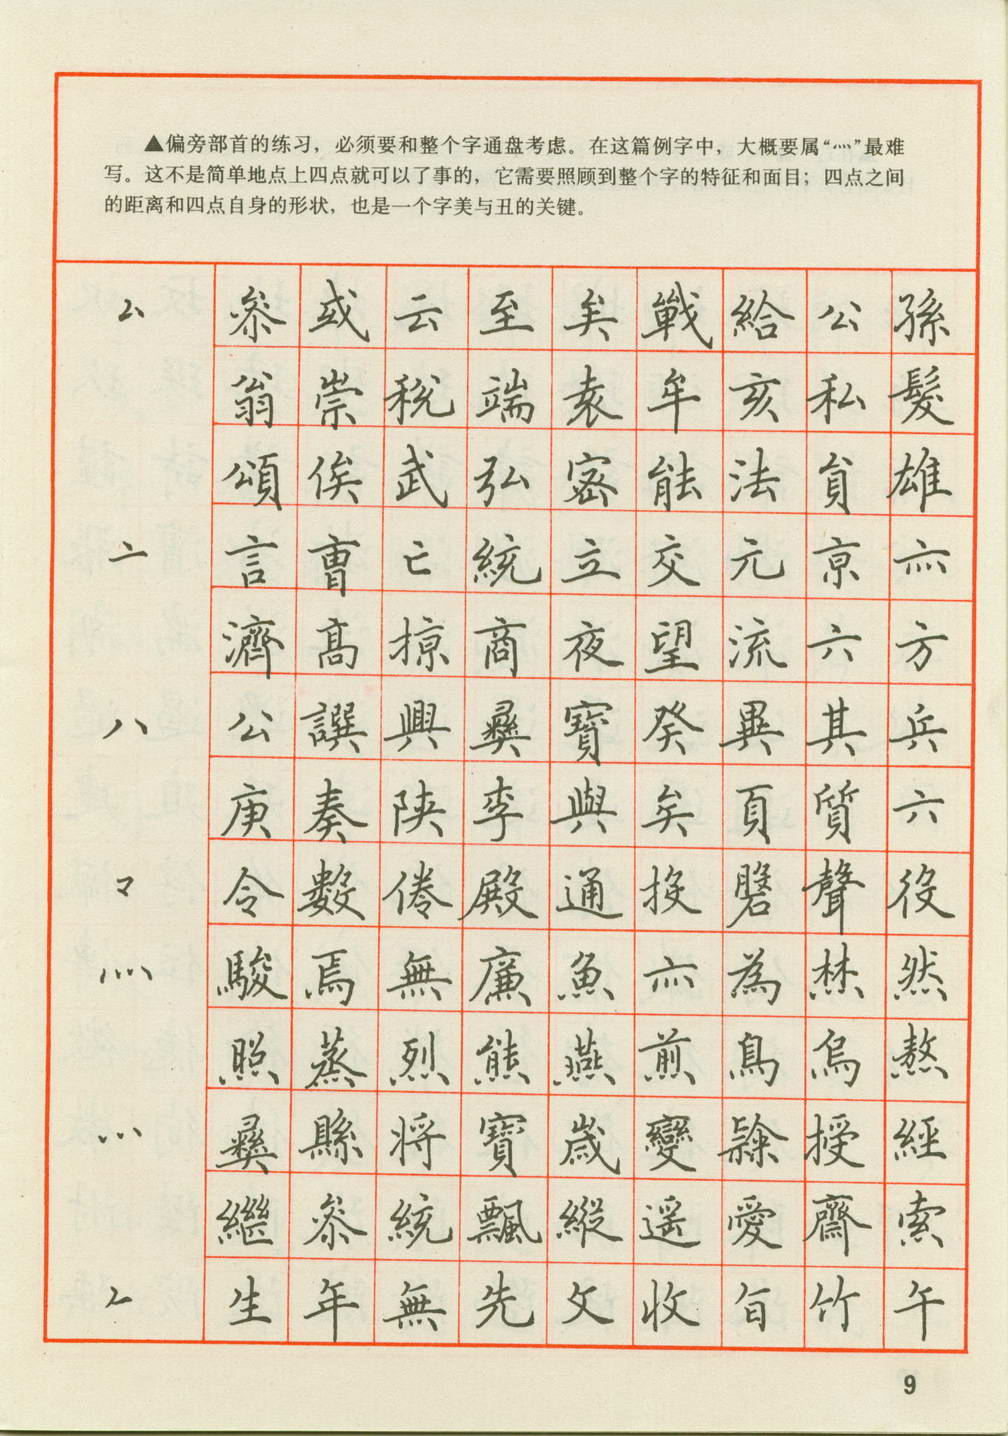 ▲偏旁部首的练习，必须要和整个字通盘考虑。在这篇例字中，大概要属“灬”最难
写。这不是简单地点上四点就可以了事的，它需要照顾到整个字的特征和面目；四点之间
的距离和四点自身的形状，也是一个字美与丑的关键。
厶 叅 或 云 至 矣 戰 給 公 孫
翁 崇 税 端 袁 牟 亥 私 髮
頌 俟 武 弘 密 能 法 貟 雄
亠 言 曹 亡 統 立 交 元 京 亦
濟 高 掠 商 夜 望 流 六 方
八 公 譔 興 彝 寶 癸 異 其 兵
庚 奏 陝 李 與 矣 頁 質 六
龴 令 數 倦 殿 通 投 聲 役
灬 駿 焉 無 廉 魚 亦 為 然
照 蒸 烈 熊 燕 煎 鳥 烏 熬
彝 縣 将 寶 歲 變 授 經
繼 叅 統 飄 縱 遥 愛 齋 索
𠂉 生 年 無 先 文 收 旨 竹 午
9